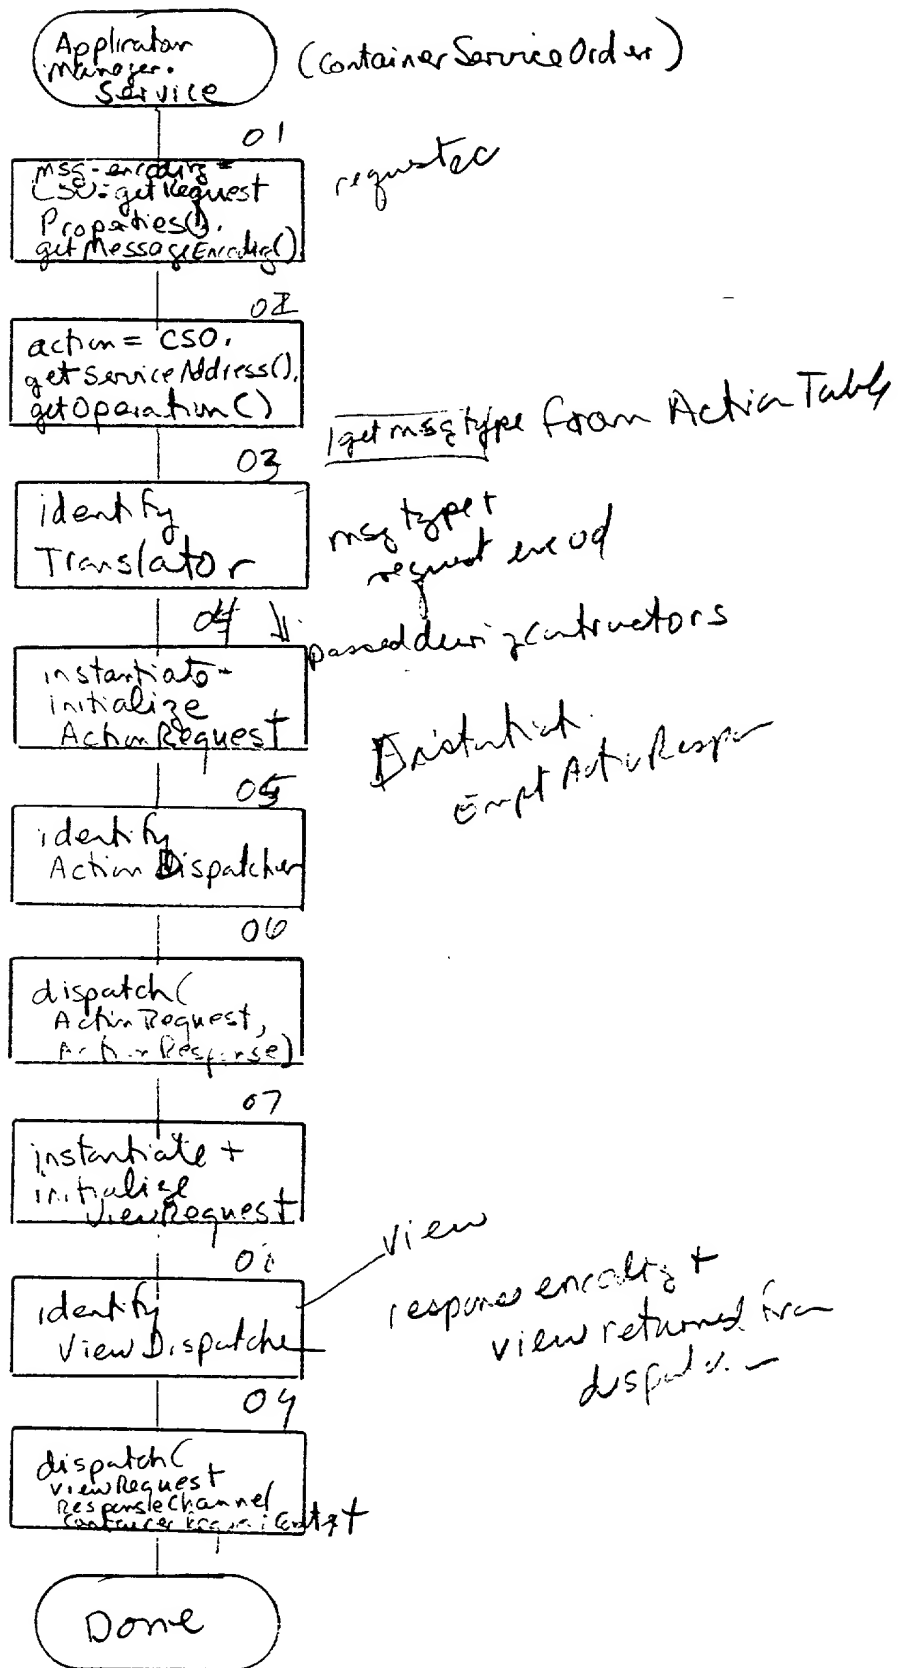 Application
Manager.
Service
(ContainerServiceOrder)
01
msg-encoding =
CSO.getRequest
Properties().
getMessageEncoding()
02
action = CSO.
getServiceAddress().
getOperation()
get msg type from Action Table
03
identify
Translator
msg type +
request encod
04
passed during contructors
instantiate-
initialize
ActionRequest
Instantiat
Empt ActionRespon
05
identify
Action Dispatcher
06
dispatch(
ActionRequest,
ActionResponse)
07
instantiate +
initialize
ViewRequest
view
identify
ViewDispatche
response encoding +
view returned from
09
dispatch(
viewRequest
ResponseChannel
Done